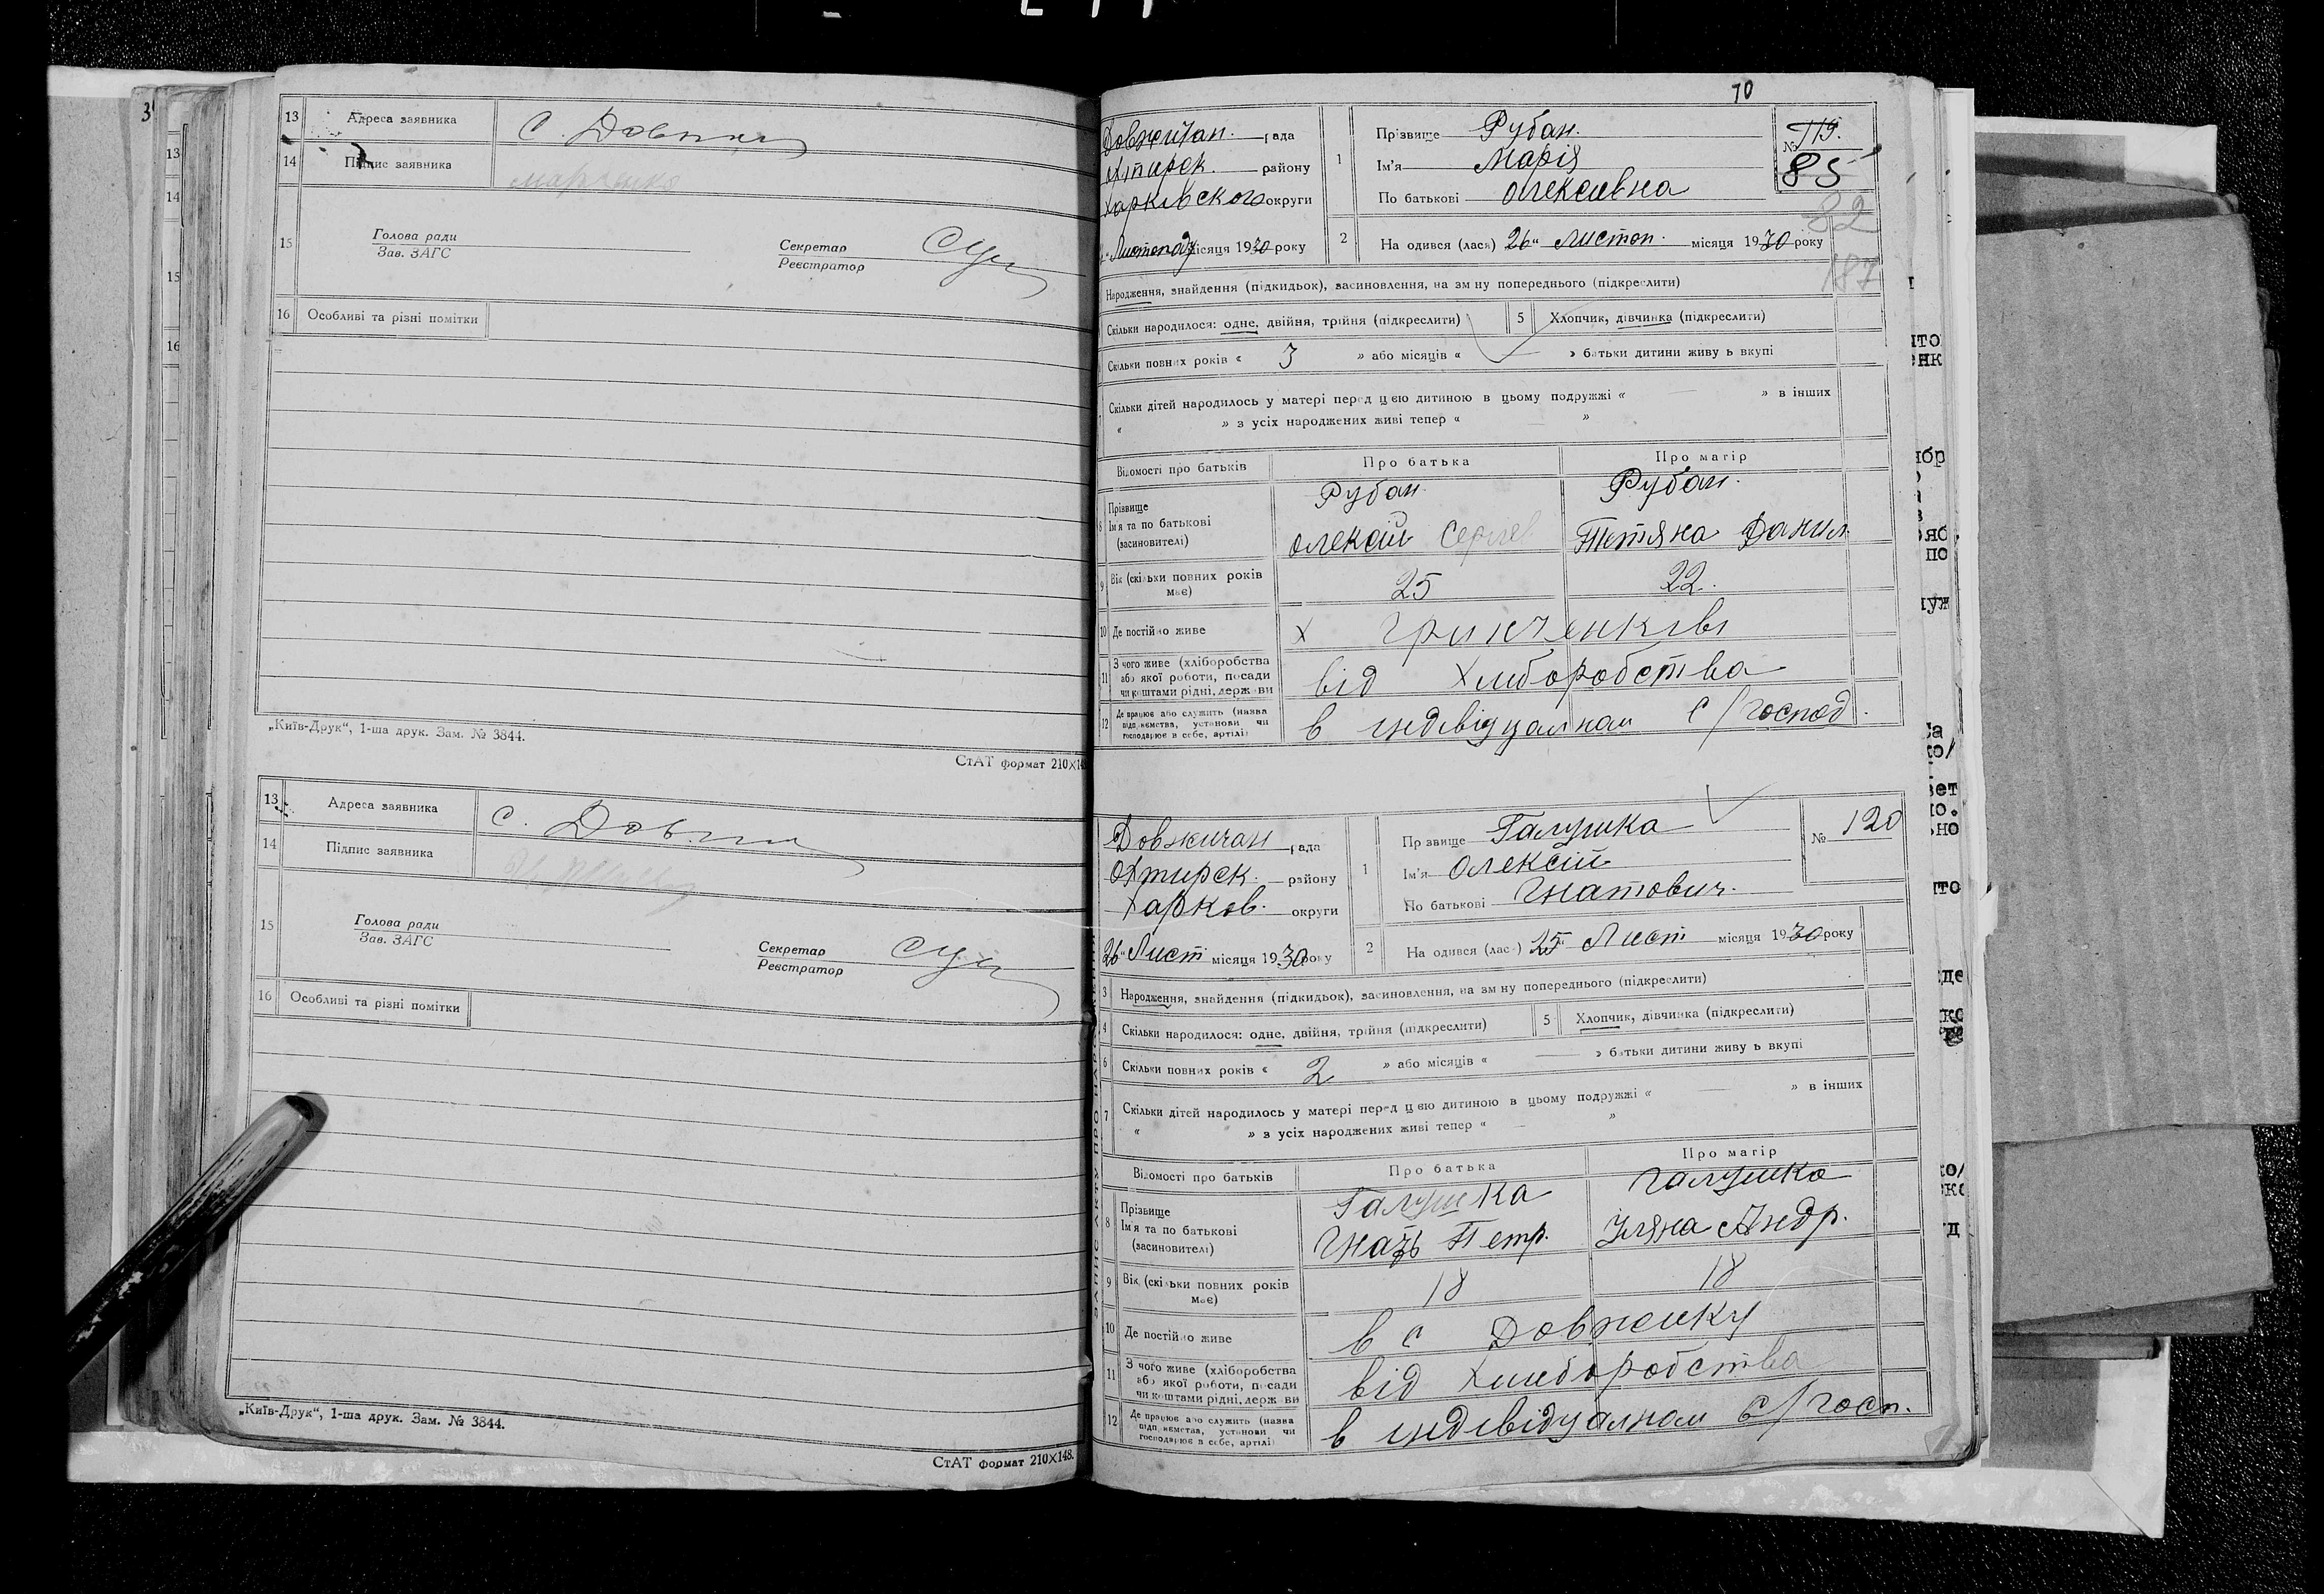 13 Адреса заявника С. Довжик
14 Підпис заявника
15 Голова ради
Зав. ЗАГС
Секретар
Реєстратор
16 Особливі та різні помітки
„Київ-Друк“, 1-ша друк. Зам. № 3844.
СтАТ формат 210×148
13 Адреса заявника С. Довжик
14 Підпис заявника
15 Голова ради
Зав. ЗАГС
Секретар
Реєстратор
16 Особливі та різні помітки
„Київ-Друк“, 1-ша друк. Зам. № 3844.
СтАТ формат 210×148.
70
Довжичан. рада
Охтирск. району
Харківского округи
Листопад місяця 1930 року
1 Прізвище Рубан.
Ім'я Марія
По батькові Олексиевна
№ 119.
85
82
187
2 На одився (лася) 26 „ Листоп. місяця 1930 року
Народження, знайдення (підкидьок), засиновлення, на зм ну попереднього (підкреслити)
Скільки народилося: одне, двійня, трійня (підкреслити) 5 Хлопчик, дівчинка (підкреслити)
Скільки повних років « 3 » або місяців « — » батьки дитини живу ь вкупі
Скільки дітей народилось у матері перед цією дитиною в цьому подружжі « — » в інших
« » з усіх народжених живі тепер « — »
Відомості про батьків Про батька Про матір
8 Прізвище Рубан. Рубан.
Ім'я та по батькові
(засиновителі) Олексій Сергіев Тетяна Данил.
9 Вік (скільки повних років має) 25 22.
10 Де постійно живе х Гринченкові
11 З чого живе (хліборобства
або якої роботи, посади
чи коштами рідні, держ ви від Хлиборобства
12 Де працює або служить (назва
підп иємства, установи чи
господарює в себе, артілі) в індевідуалном С/господ.
Довжичан рада
Охтирск. району
Харков. округи
26 „ Лист місяця 1930 року
1 Пр звище Галушка
Ім'я Олексій
По батькові Гнатович.
№ 120
2 На одився (лас ) 25 „ Лист місяця 1930 року
3 Народження, знайдення (підкидьок), засиновлення, на зм ну попереднього (підкреслити)
4 Скільки народилося: одне, двійня, трійня (підкреслити) 5 Хлопчик, дівчинка (підкреслити)
6 Скільки повних років « 2 » або місяців « — » батьки дитини живу ь вкупі
7 Скільки дітей народилось у матері перед цією дитиною в цьому подружжі « — » в інших
« » з усіх народжених живі тепер « — »
Відомості про батьків Про батька Про матір
8 Прізвище Галушка Галушка
Ім'я та по батькові
(засиновителі) Гнать Петр. Уляна Андр.
9 Вік (скільки повних років має) 18 18
10 Де постійно живе в с Довжику
11 З чого живе (хліборобства
або якої роботи, посади
чи коштами рідні, держ ви від Хлиборобства
12 Де працює або служить (назва
підп иємства, установи чи
господарює в себе, артілі) в індевідуалном С/госп.